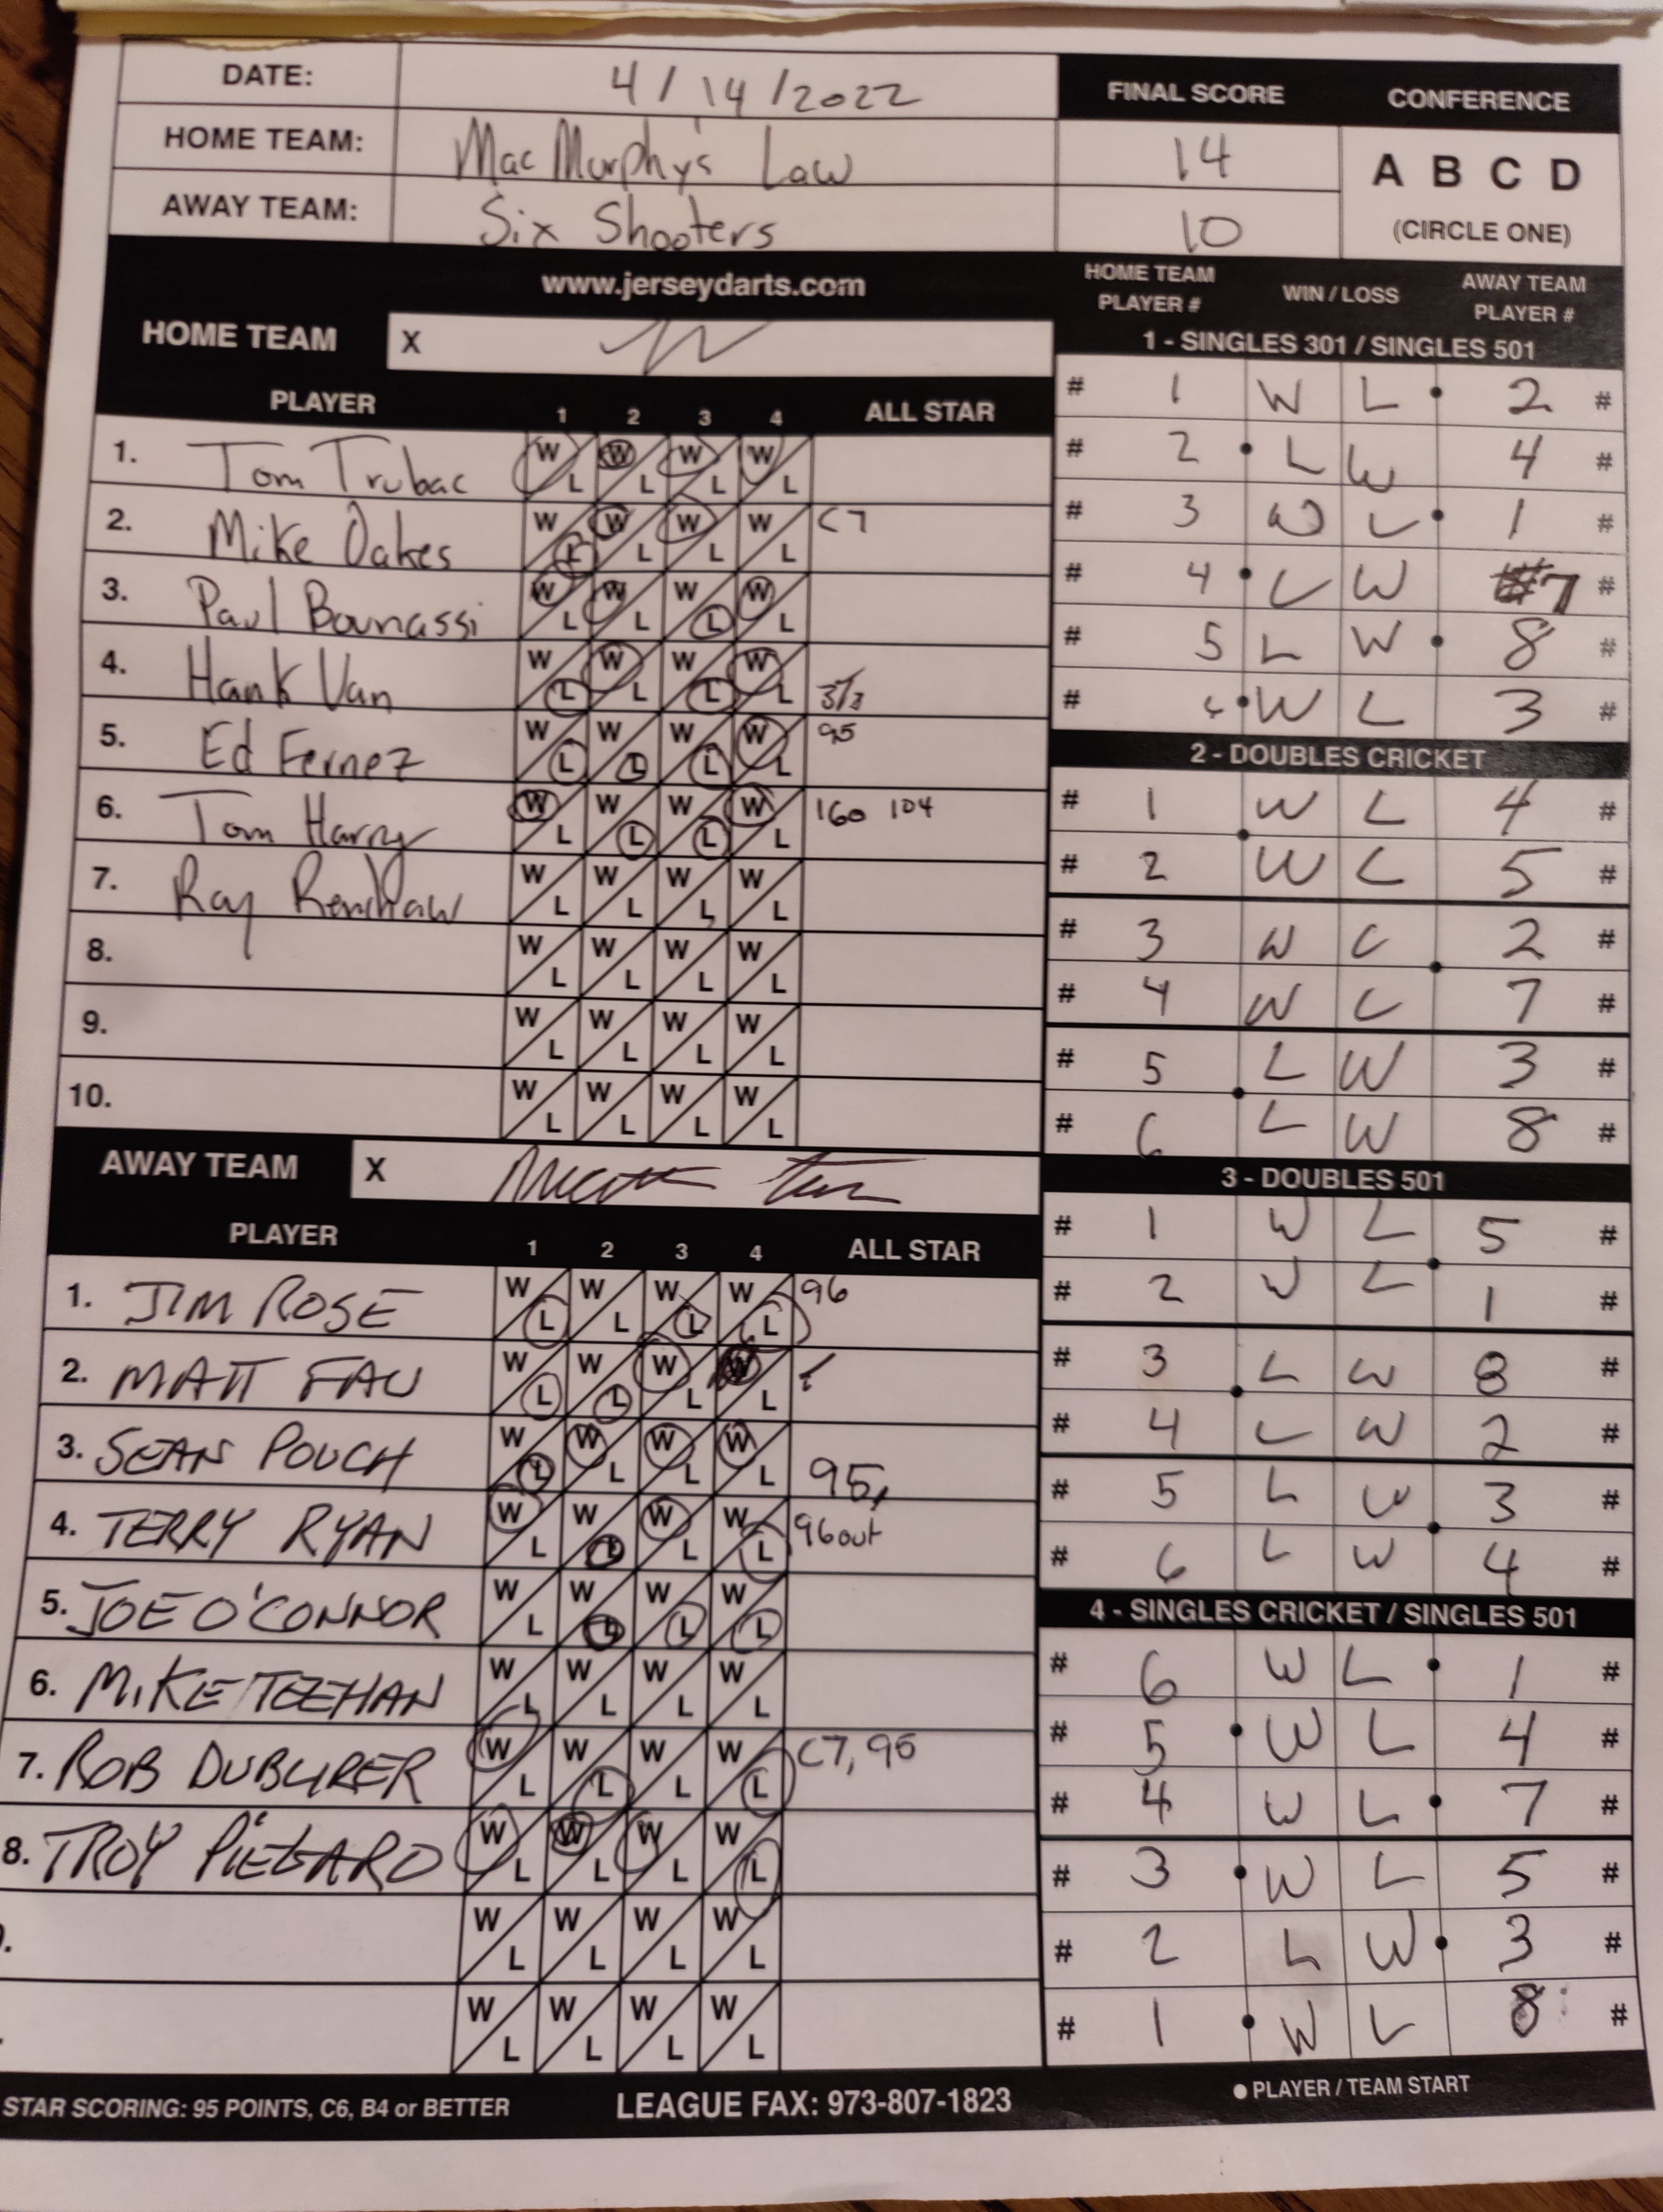 DATE: 4/14/2022
HOME TEAM: Mac Murphy's Law
AWAY TEAM: Six Shooters
FINAL SCORE CONFERENCE
14
10
A B C D
(CIRCLE ONE)
www.jerseydarts.com
HOME TEAM X
PLAYER 1 2 3 4 ALL STAR
1. Tom Trubac W L W L W L W L
2. Mike Oakes W L W L W L W L C7
3. Paul Bounassi W L W L W L W L
4. Hank Van W L W L W L W L 3/3
5. Ed Fernez W L W L W L W L 95
6. Tom Harry W L W L W L W L 160 104
7. Ray Renshaw W L W L W L W L
8. W L W L W L W L
9. W L W L W L W L
10. W L W L W L W L
AWAY TEAM X
PLAYER 1 2 3 4 ALL STAR
1. JIM ROSE W L W L W L W L 96
2. MATT FAU W L W L W L W L
3. SEAN POUCH W L W L W L W L 95,
4. TERRY RYAN W L W L W L W L 96 out
5. JOE O'CONNOR W L W L W L W L
6. MIKE TEEHAN W L W L W L W L
7. ROB W L W L W L W L C7, 95
8. TROY W L W L W L W L
W L W L W L W L
W L W L W L W L
HOME TEAM PLAYER # WIN / LOSS AWAY TEAM PLAYER #
1 - SINGLES 301 / SINGLES 501
# 1 W L • 2 #
# 2 • L W 4 #
# 3 W L • 1 #
# 4 • L W 7 #
# 5 L W • 8 #
# 6 • W L 3 #
2 - DOUBLES CRICKET
# 1 W L 4 #
# 2 W L 5 #
# 3 W L 2 #
# 4 W L 7 #
# 5 L W 3 #
# 6 L W 8 #
3 - DOUBLES 501
# 1 W L 5 #
# 2 W L 1 #
# 3 L W 8 #
# 4 L W 2 #
# 5 L W 3 #
# 6 L W 4 #
4 - SINGLES CRICKET / SINGLES 501
# 6 W L • 1 #
# 5 • W L 4 #
# 4 W L • 7 #
# 3 • W L 5 #
# 2 L W • 3 #
# 1 • W L 8 #
STAR SCORING: 95 POINTS, C6, B4 or BETTER LEAGUE FAX: 973-807-1823 ● PLAYER / TEAM START